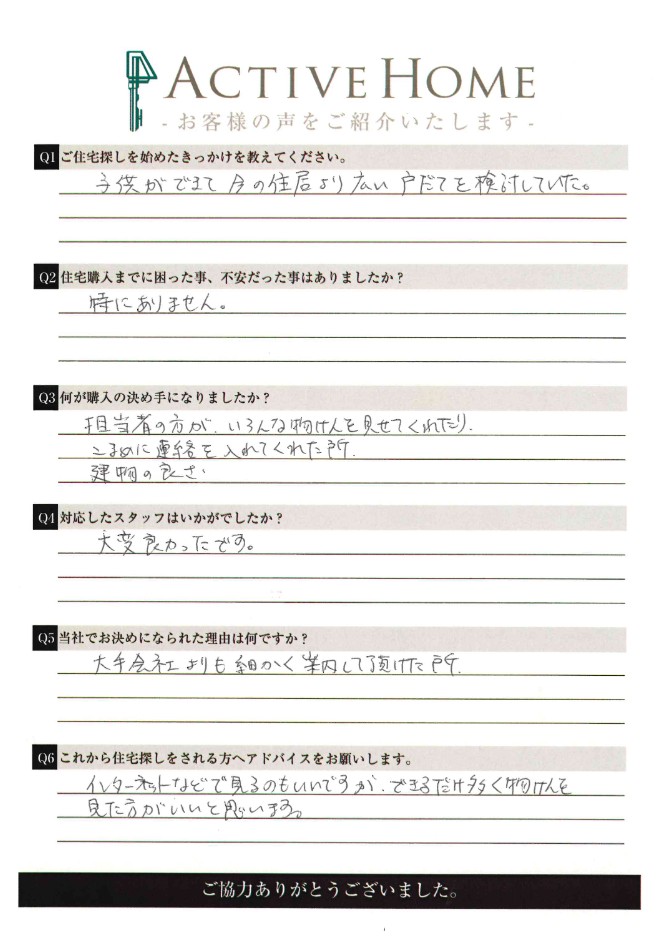 ACTIVE HOME
- お客様の声をご紹介いたします -
Q1 ご住宅探しを始めたきっかけを教えてください。
子供ができて 今の住居より広い 戸だてを検討していた。
Q2 住宅購入までに困った事、不安だった事はありましたか?
特にありません。
Q3 何が購入の決め手になりましたか?
担当者の方が、いろんな物けんを見せてくれたり、
こまめに連絡を入れてくれた所、
建物の良さ
Q4 対応したスタッフはいかがでしたか?
大変良かったです。
Q5 当社でお決めになられた理由は何ですか?
大手会社よりも細かく案内して頂けた所。
Q6 これから住宅探しをされる方へアドバイスをお願いします。
インターネットなどで見るのもいいですが、できるだけ多く物けんを
見た方がいいと思います。
ご協力ありがとうございました。